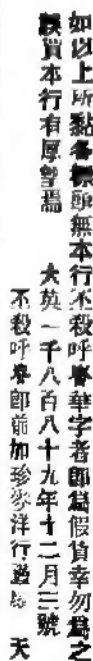 如以上所黏各標頭無本行不毅呼喀華字者即為假貨幸勿為之
誤買本行有厚望焉
大英一千八百八十九年十二月三號
不毅呼喀即前加珍洋行 天